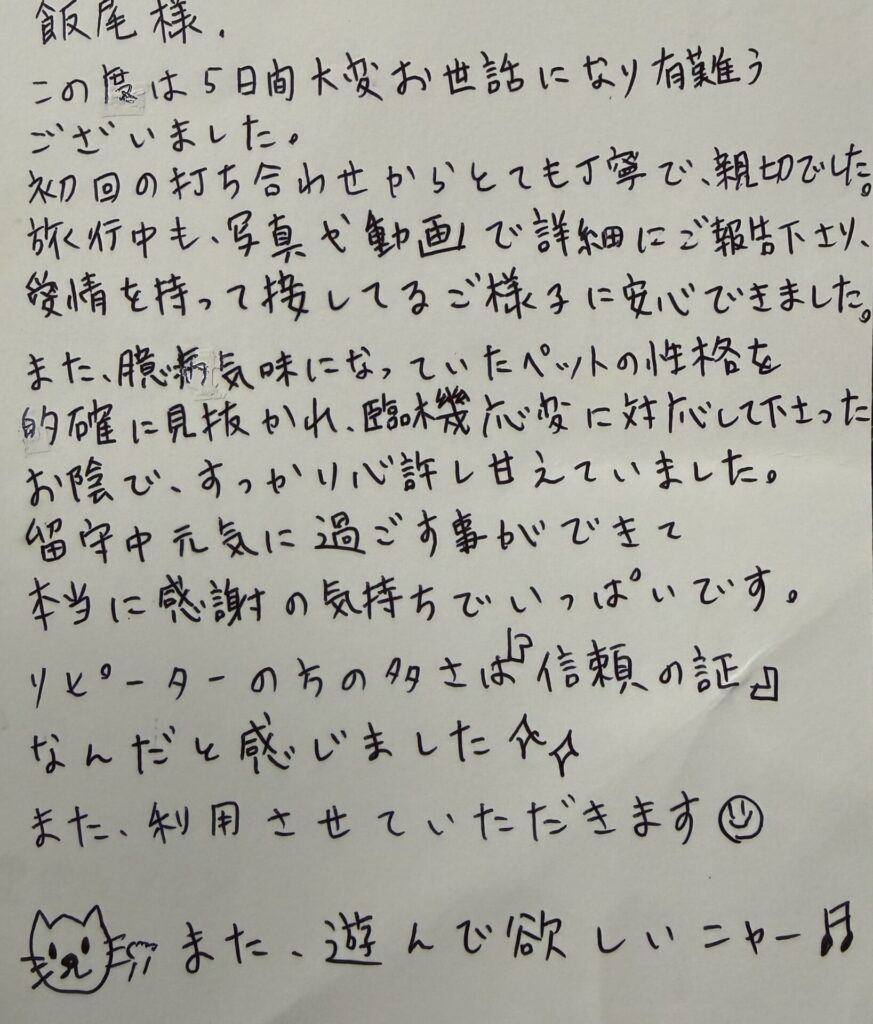 飯尾様.
この度は5日間大変お世話になり有難う
ございました。
初回の打ち合わせからとても丁寧で、親切でした。
旅行中も、写真や動画で詳細にご報告下さり、
愛情を持って接してるご様子に安心できました。
また、臆病気味になっていたペットの性格を
的確に見抜かれ、臨機応変に対応して下さった
お陰で、すっかり心許し甘えていました。
留守中元気に過ごす事ができて
本当に感謝の気持ちでいっぱいです。
リピーターの方の多さは『信頼の証』
なんだと感じました
また、利用させていただきます
また、遊んで欲しいニャー♬